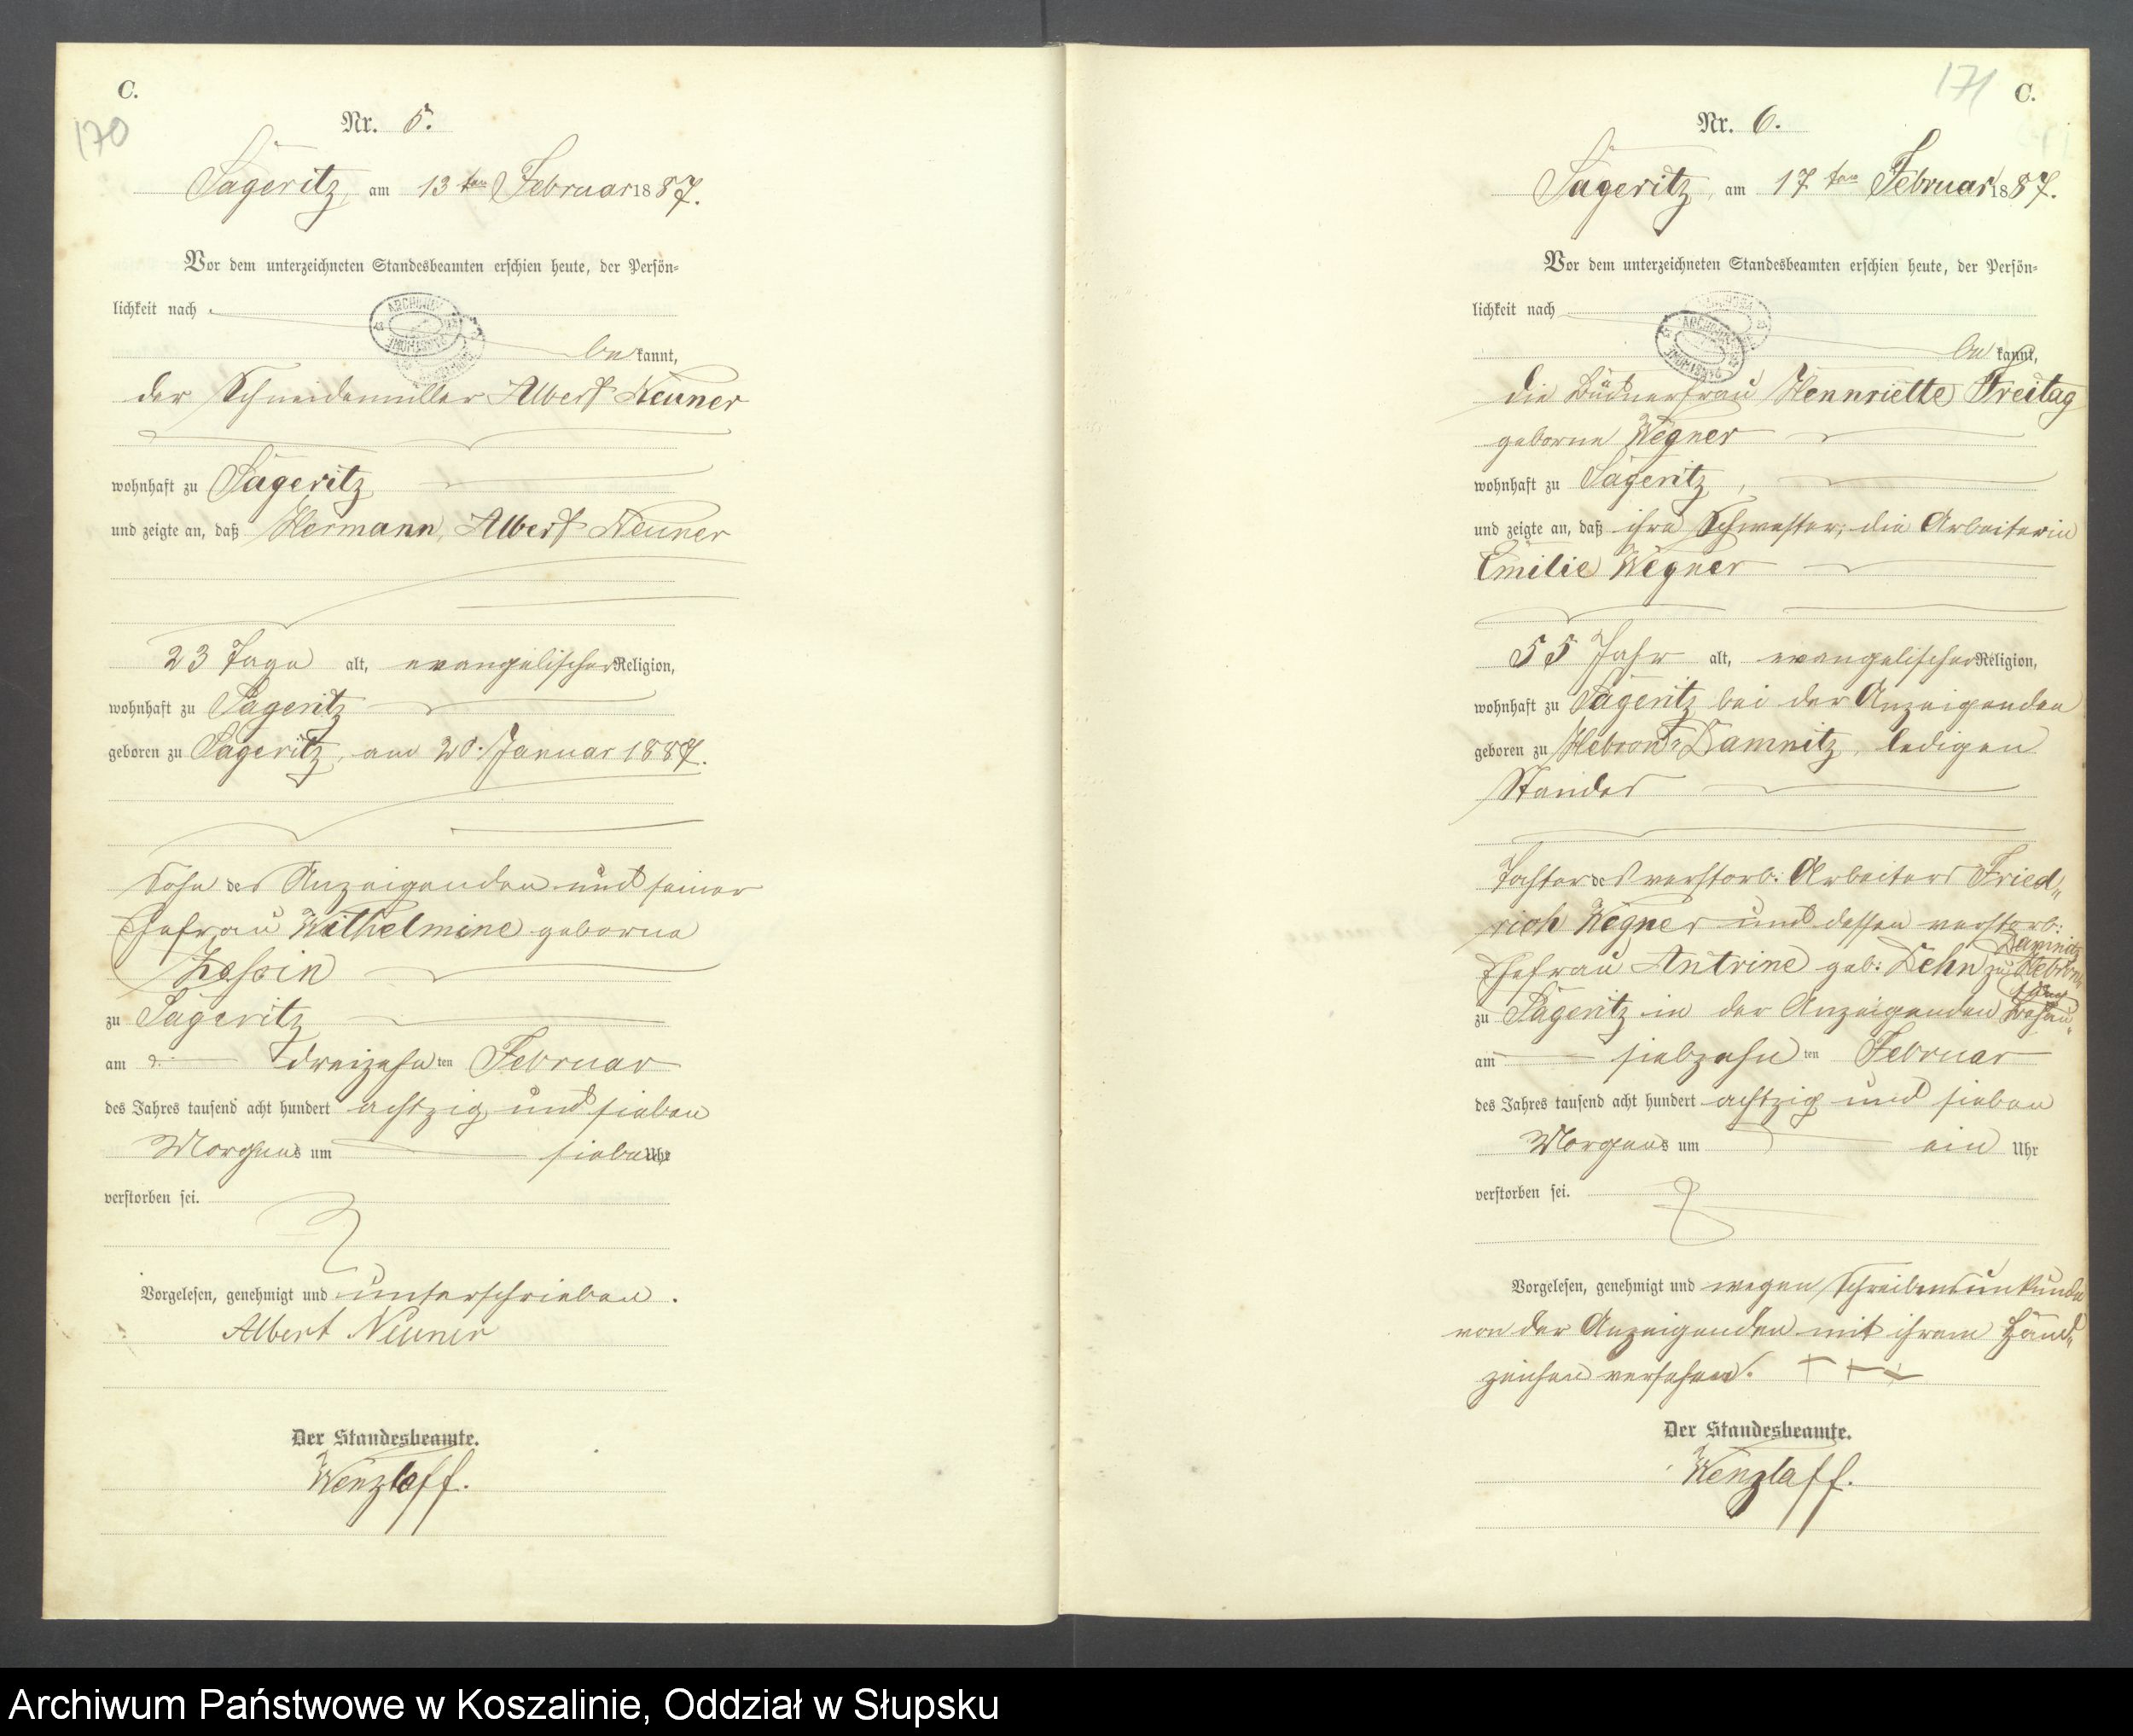 C.
170
Nr. 5.
Sageritz, am 13ten Februar 1887.
Vor dem unterzeichneten Standesbeamten erschien heute, der Persön-
lichkeit nach
bekannt,
der Schneidemüller Albert Neuner
wohnhaft zu Sageritz
und zeigte an, daß Hermann, Albert Neuner
23 Tage alt, evangelischer Religion,
wohnhaft zu Sageritz
geboren zu Sageritz, am 20. Januar 1887.
Sohn des Anzeigenden und seiner
Ehefrau Wilhelmine geborne
zu Sageritz
am dreizehnten Februar
des Jahres tausend acht hundert achtzig und sieben
Morgens um sieben Uhr
verstorben sei.
Vorgelesen, genehmigt und unterschrieben.
Albert Neuner
Der Standesbeamte.
Wenzlaff.
171
C.
Nr. 6.
Sageritz, am 17ten Februar 1887.
Vor dem unterzeichneten Standesbeamten erschien heute, der Persön-
lichkeit nach
bekannt,
die Büdnerfrau Hennriette Freitag
geborne Wegner
wohnhaft zu Sageritz,
und zeigte an, daß ihre Schwester, die Arbeiterin
Emilie Wegner
55 Jahr alt, evangelischer Religion,
wohnhaft zu Sageritz bei der Anzeigenden
geboren zu Hebron-Damnitz, ledigen
Standes
Tochter des verstorb: Arbeiters Fried-
rich Wegner und dessen verstorb:
Ehefrau Antrine geb: Dehn zu Hebron-
Damnitz
zu Sageritz in der Anzeigenden Wohnu-
ng
am siebzehnten Februar
des Jahres tausend acht hundert achtzig und sieben
Morgens um ein Uhr
verstorben sei.
Vorgelesen, genehmigt und wegen Schreibensunkunde
von der Anzeigenden mit ihrem Hand-
zeichen versehen. + + +
Der Standesbeamte.
Wenzlaff.
Archiwum Państwowe w Koszalinie, Oddział w Słupsku